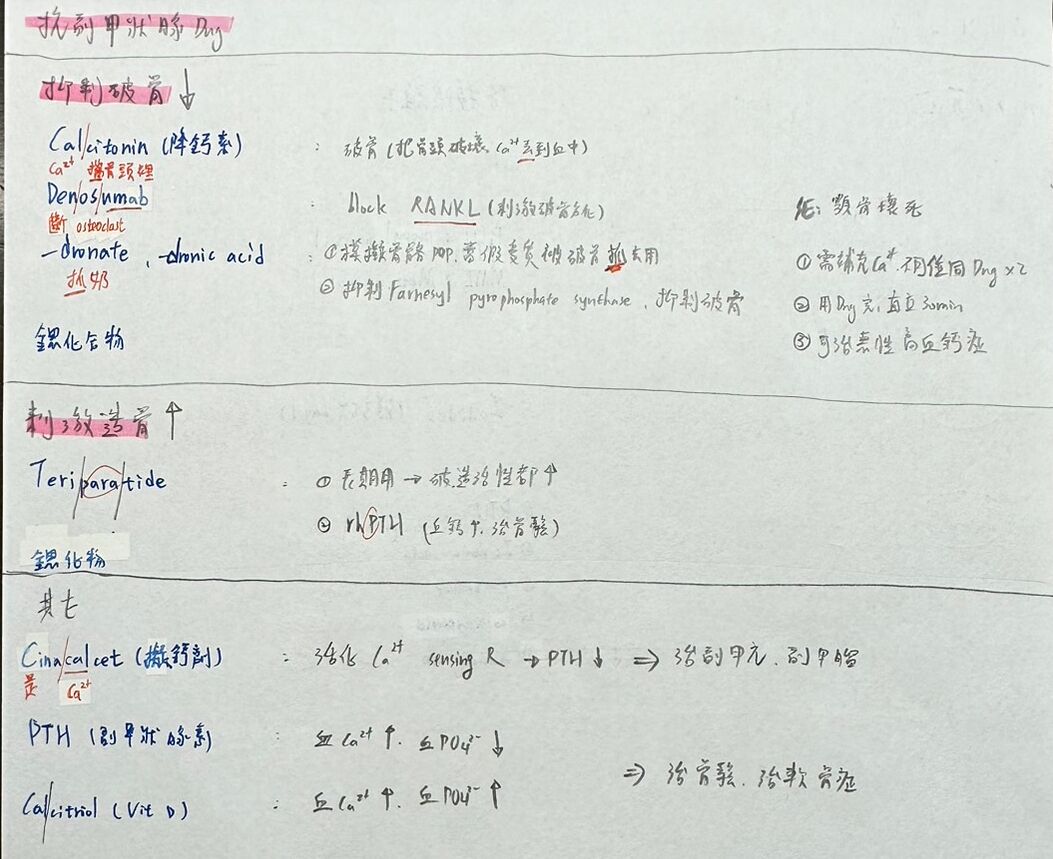 抗副甲狀腺 Drug
抑制破骨 ↓
Calcitonin (降鈣素) : 破骨 (把骨頭破壞, Ca²⁺丟到血中)
Ca²⁺ 骨頭裡
Denosumab : block RANKL (刺激破骨分化) SE: 顎骨壞死
斷 osteoclast
-dronate, -dronic acid : ① 模擬骨骼 PDP, 當假貨 被破骨抓去用 ① 需補充Ca²⁺, 不同 Drug x2
抓奶
② 抑制 Farnesyl pyrophosphate synthase, 抑制破骨 ② 用Drug完, 直立30min
鍶化合物 ③ 可治惡性高血鈣症
刺激造骨 ↑
Teriparatide : ① 長期用 → 破造活性都↑
② rhPTH (血鈣↑, 治骨鬆)
鍶化物
其它
Cinacalcet (擬鈣劑) : 活化 Ca²⁺ sensing R → PTH ↓ ⇒ 治副甲亢, 副甲癌
是 Ca²⁺
PTH (副甲狀腺素) : 血Ca²⁺ ↑, 血PO₄³⁻ ↓
⇒ 治骨鬆, 治軟骨症
Calcitriol (Vit D) : 血Ca²⁺ ↑, 血PO₄³⁻ ↑